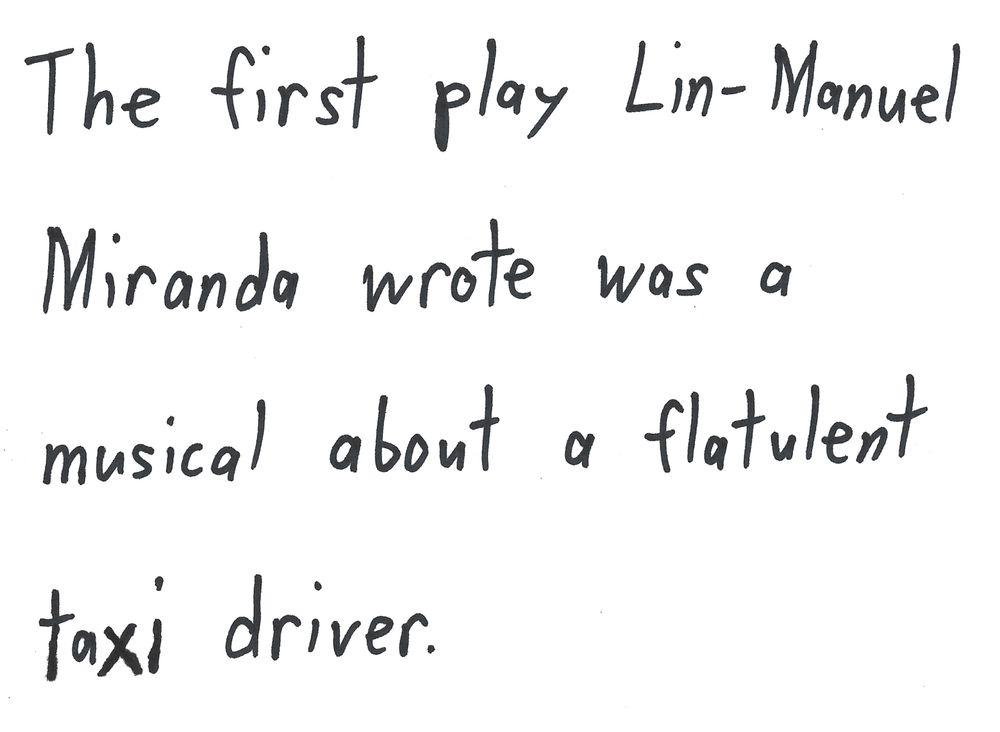 The first play Lin-Manuel
Miranda wrote was a
musical about a flatulent
taxi driver.